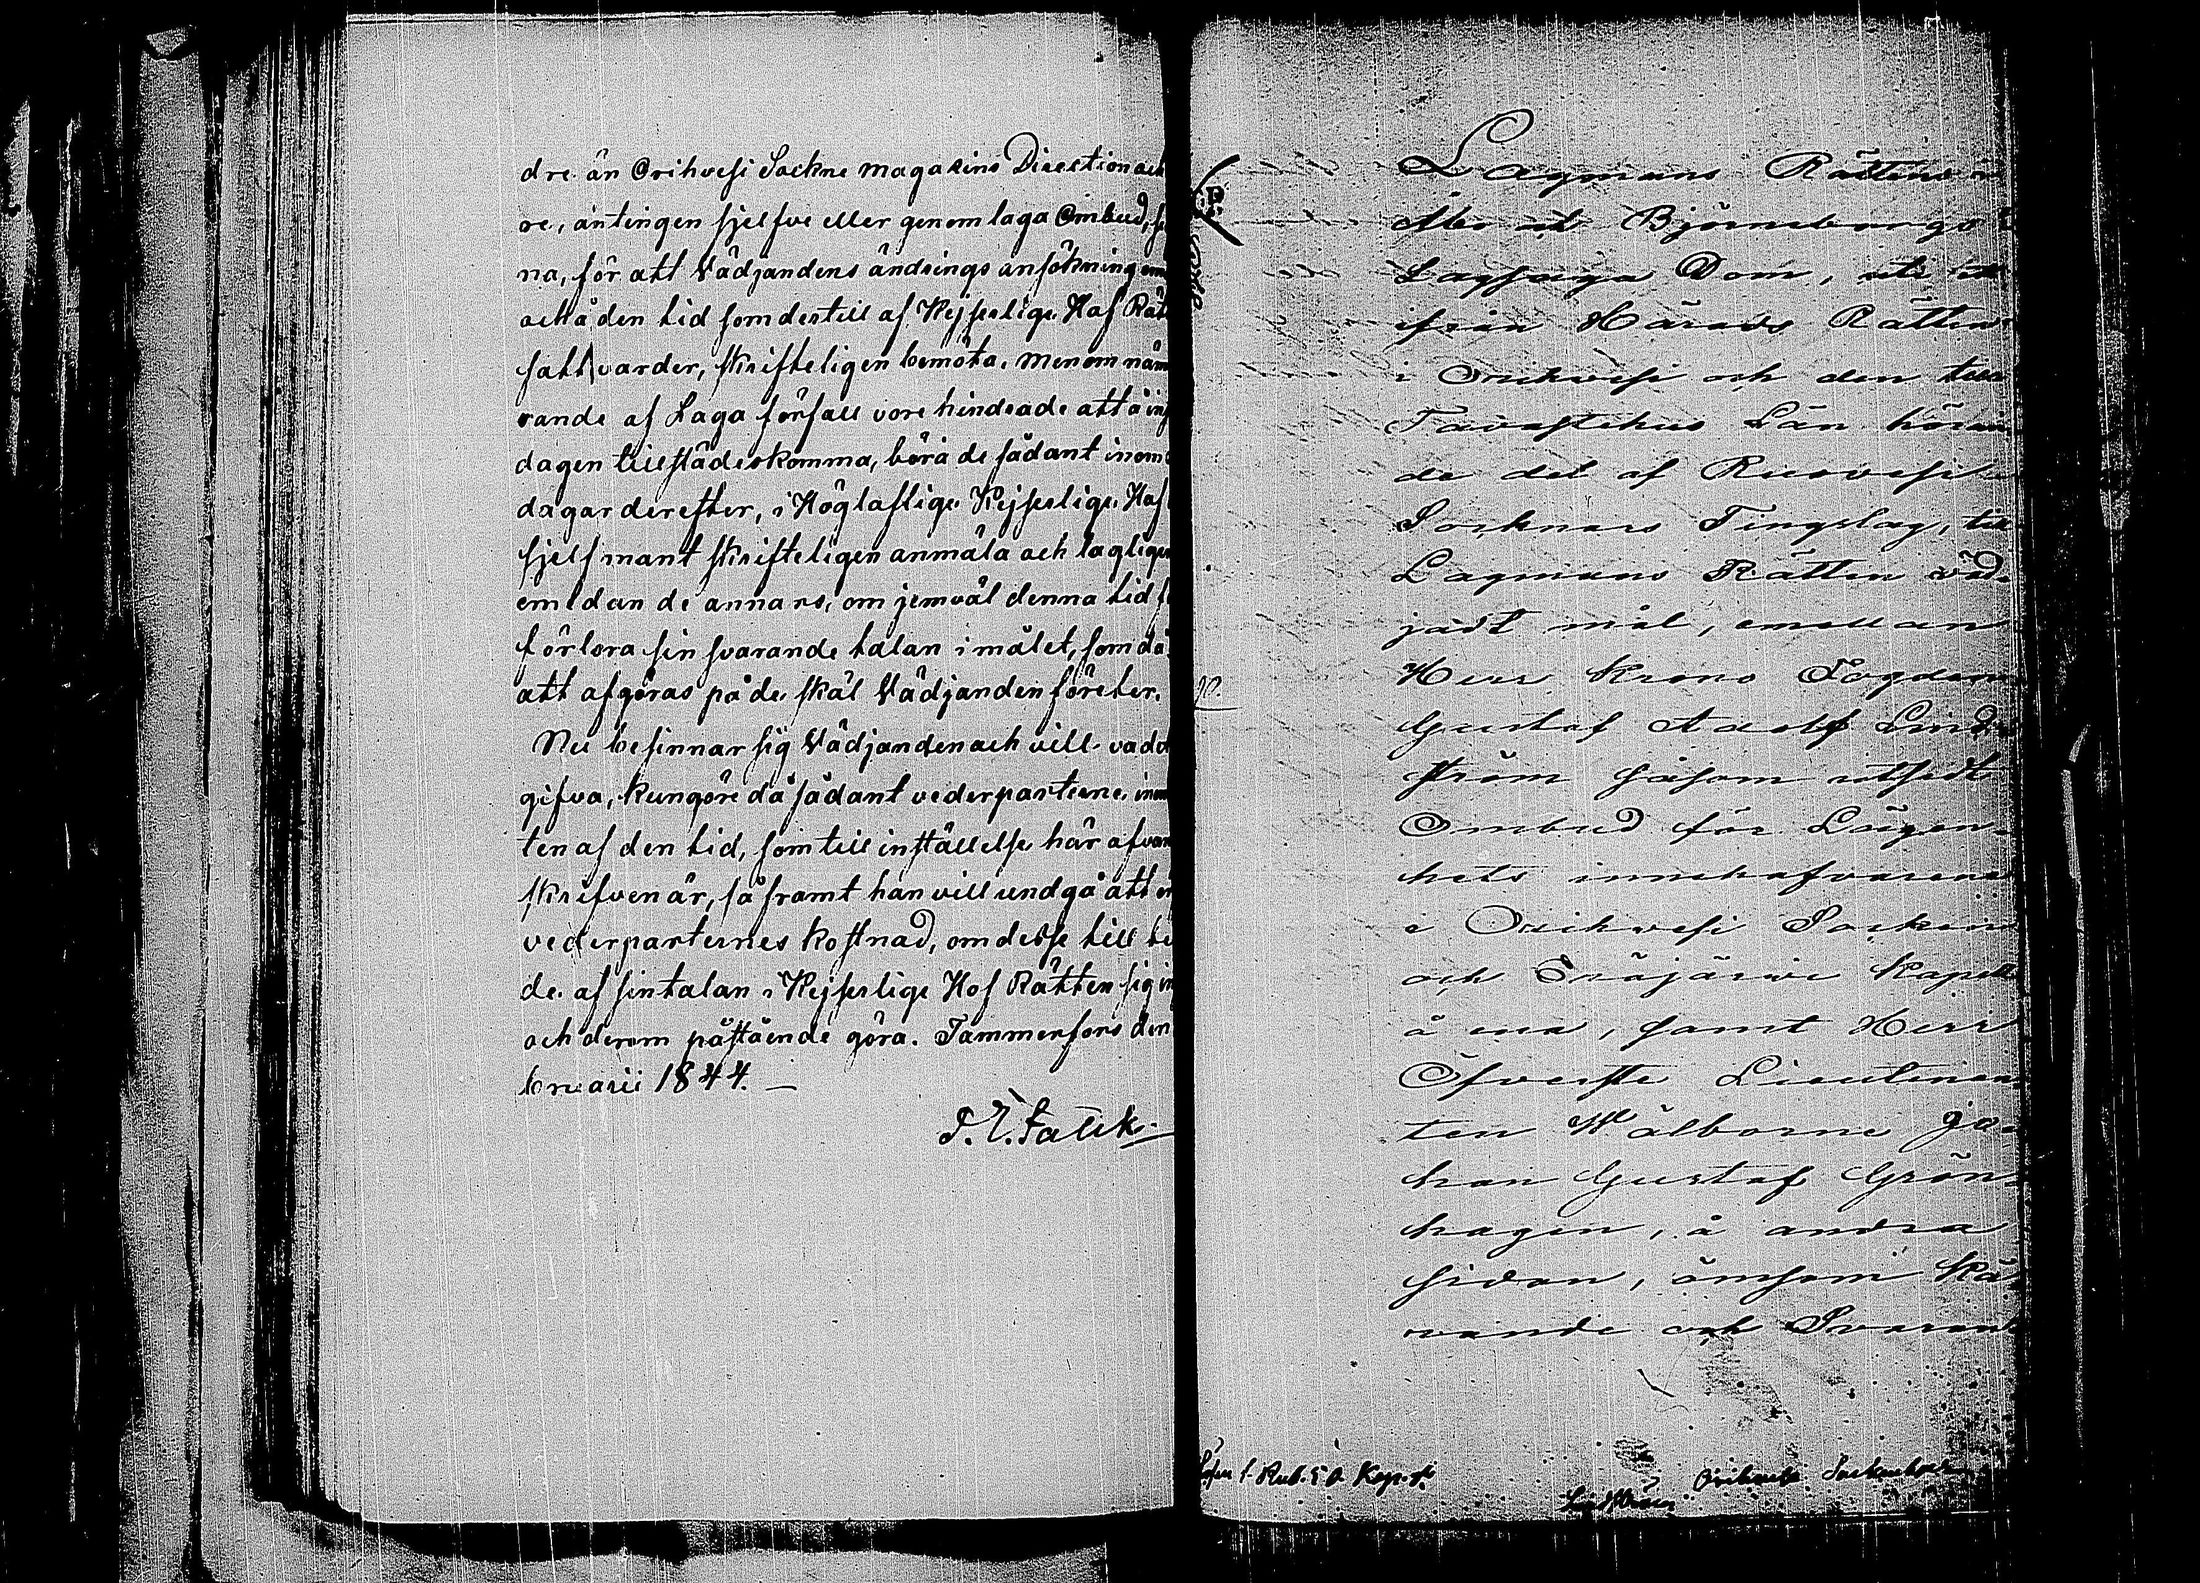 dre än Orihvesi Sockne magasins Direction och
re, antingen sjelfve eller genom laga Ombud,
na, för att Vädjandens ändrings ansökning
och å den tid som dertill af Kejserlige Hof Rätt
satt varder, skrifteligen bemöta. Men om näm
rande af Laga förfall vore hindrade att å in
dagen tillstädeskomma, böra de sådant inom
dagar derefter, i Höglaflige Kejserlige Hof
sjelfmant skrifteligen anmäla och lagligen
emedan de annars, om jemväl denna tid
förlora sin svarande talan i målet, som då
att afgöras på de skäl Vädjanden företer.
Nu besinnar sig Vädjanden och vill vadd
gifva, kungöre då sådant vederparterne inom
ten af den tid, som till inställelse här ofvan
skrifven är, så framt han vill undgå att
vederparternes kostnad, om desse till be
de af sin talan i Kejserlige Hof Rätten sig in
och derom påstående göra. Tammerfors den
bruarii 1844. —
Lagmans Rättens i
Åbo och Björneborgs
Lagsaga Dom, uti ett
ifrån Härads Rätten
i Orihvesi och den till
Tavastehus Län höran
de del af Ruovesi
Socknars Tingslag, till
Lagmans Rätten väd-
jadt mål, emellan
Herr Krono Fogden
Gustaf Adolf Lind-
ström såsom utsedt
Ombud för Lägen-
hets innehafvarena
i Orihvesi Socken
och Eräjärvi Kapell
å ena, samt Herr
Öfverste Lieutenan
ten Wälborne Jo-
han Gustaf Grön-
hagen, å andra
sidan, ömsom Kä-
rande och Svarand